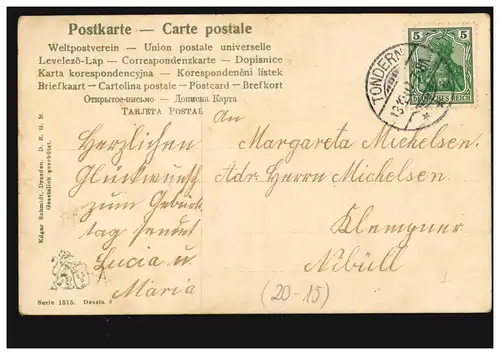 Postkarte — Carte postale
Weltpostverein — Union postale universelle
Levelező-Lap — Correspondenzkarte — Dopisnice
Karta korespondencyjna — Korespondenční lístek
Briefkaart — Cartolina postale — Postcard — Brefkort
Открытое-письмо — Дописна Карта
TARJETA POSTAL
5 5
DEUTSCHES REICH
TONDERN
An
Margareta Michelsen
Adr. Herrn Michelsen
Klempner
Nibüll
Herzlichen
Glückwunsch
zum Geburts
tag sendet
Lucia u
Maria
(20-15)
Edgar Schmidt, Dresden. D. R. G. M.
Gesetzlich geschützt.
Serie 1515. Dessin